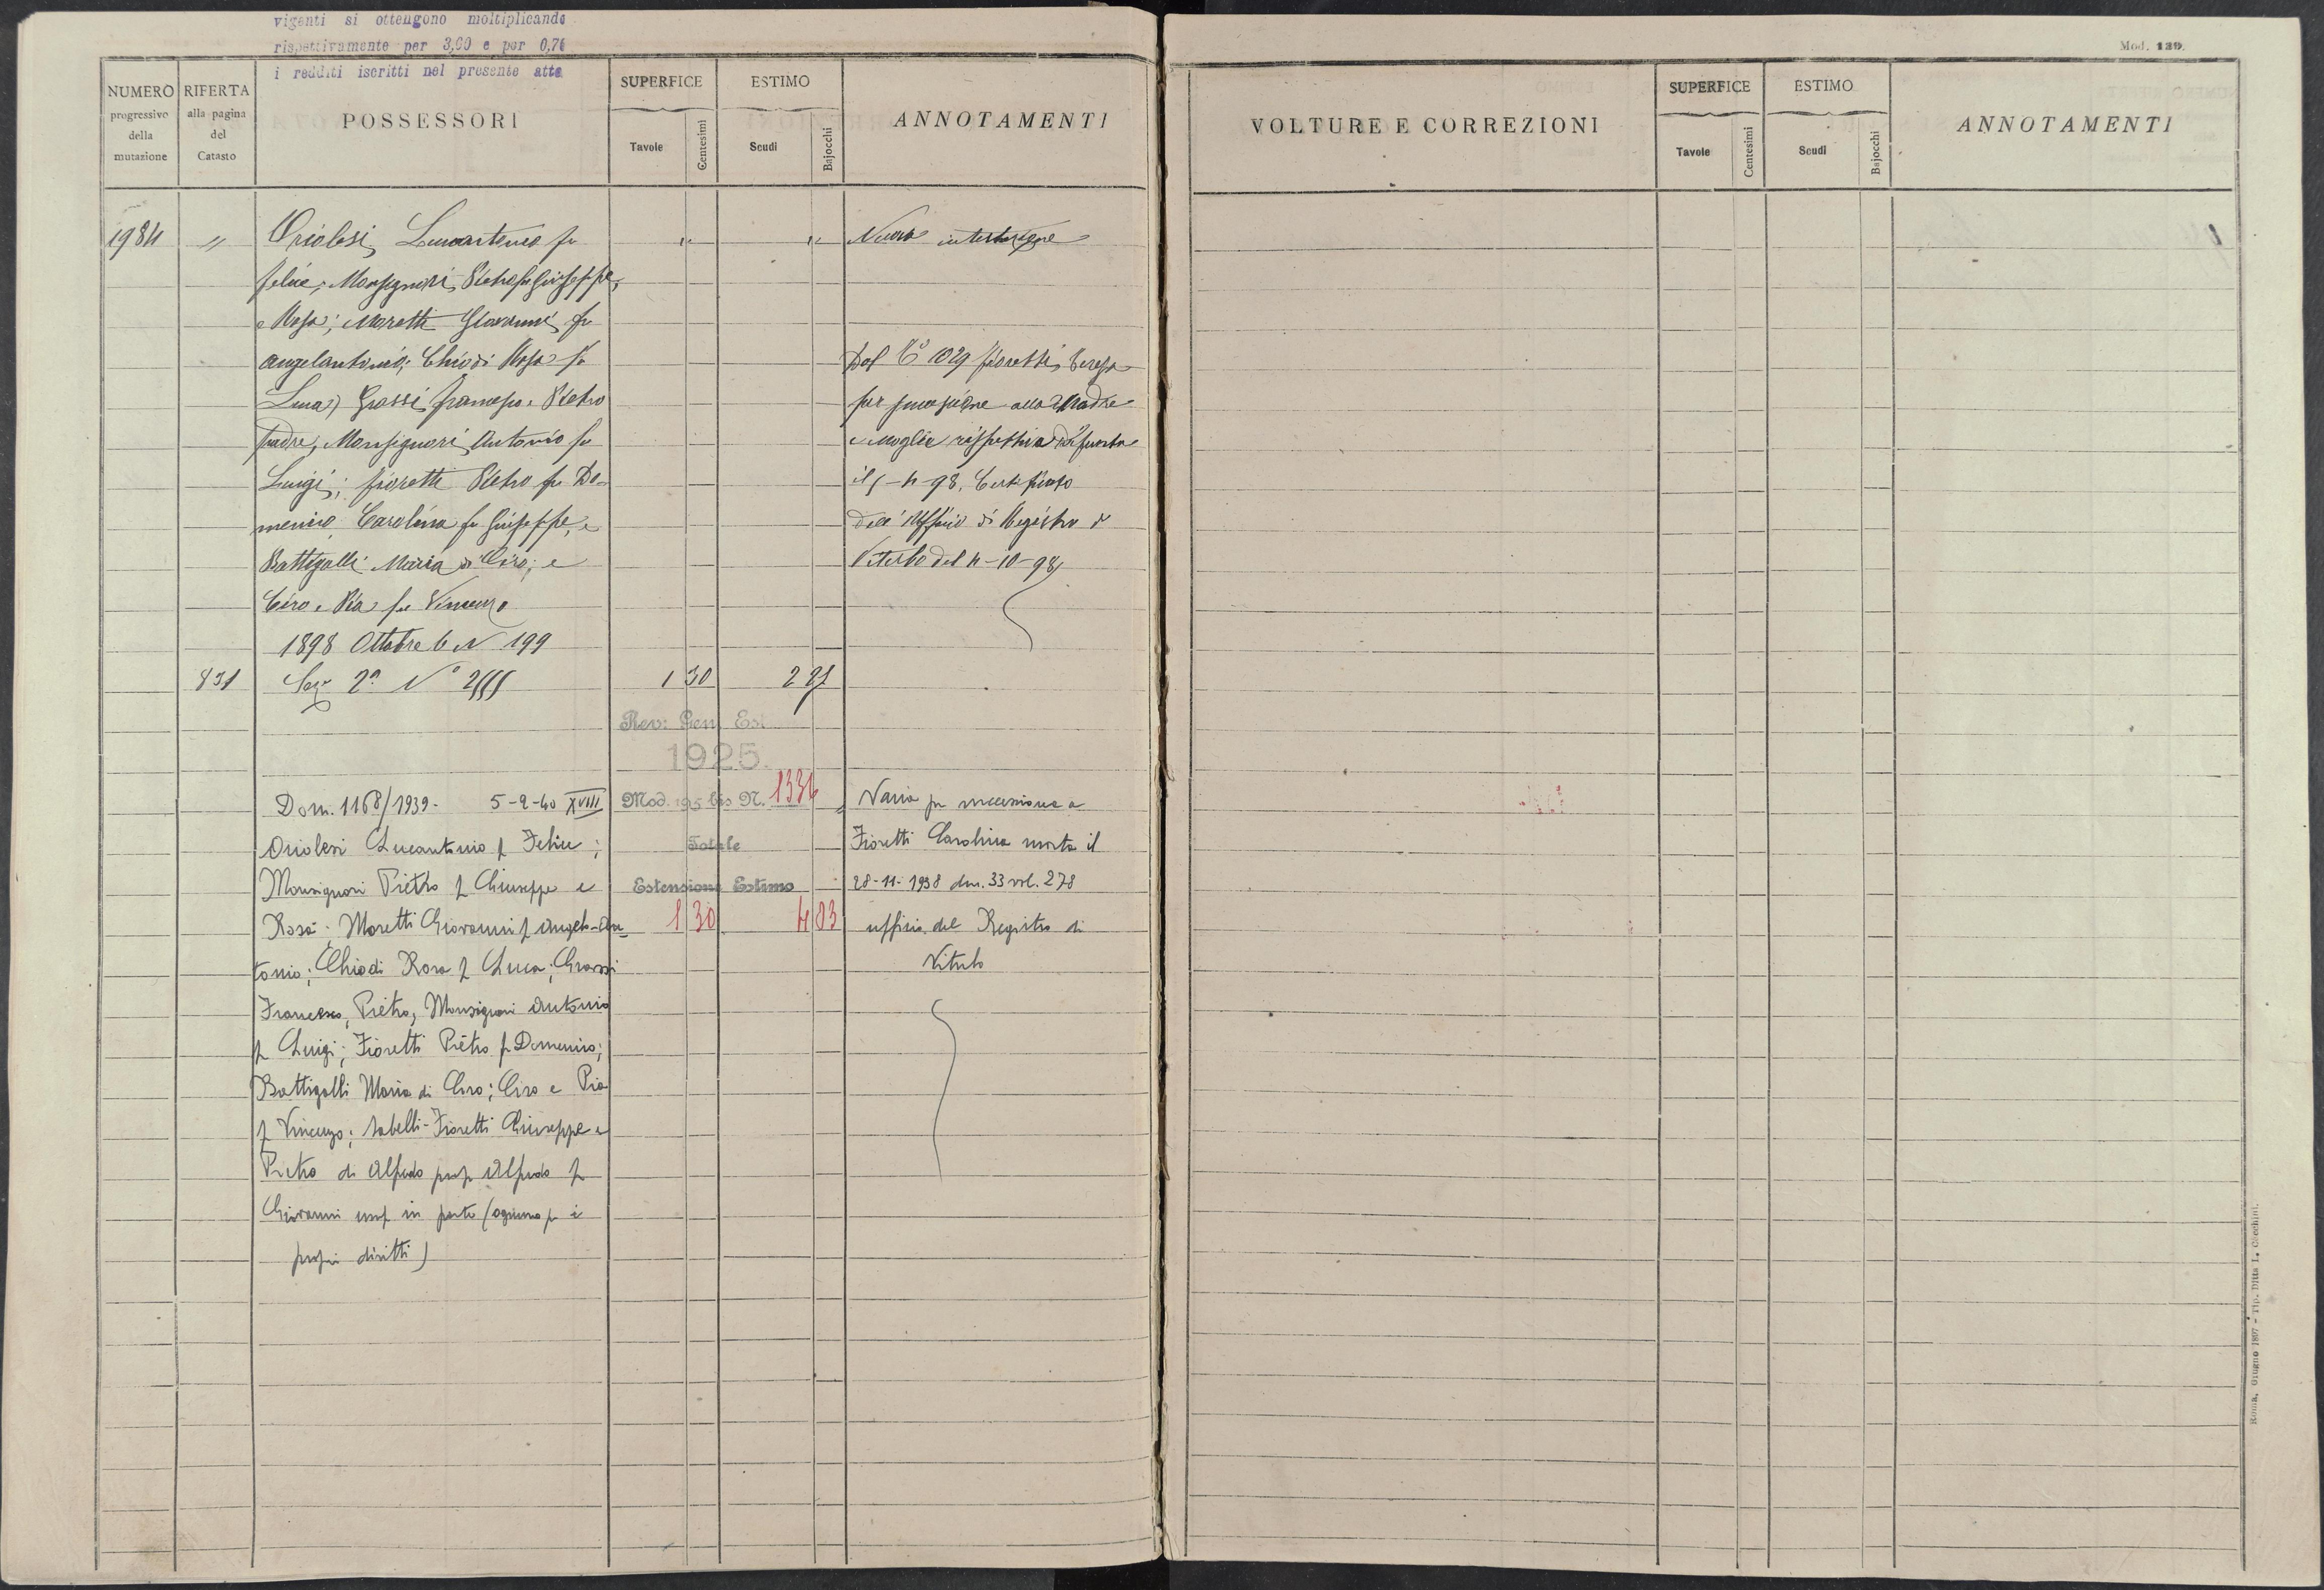 viganti si ottengono moltiplicando
rispettivamente per 3,60 e per 0,76
i redditi iscritti nel presente atto
Mod. 139.
NUMERO progressivo della mutazione
RIFERTA alla pagina del Catasto
POSSESSORI
SUPERFICE
Tavole Centesimi
ESTIMO
Scudi Bajocchi
ANNOTAMENTI
VOLTURE E CORREZIONI
SUPERFICE
Tavole Centesimi
ESTIMO
Scudi Bajocchi
ANNOTAMENTI
1984 " Oriolesi Lucantonio fu " " Nuova intestazione
Felice; Monsignori Pietro fu Giuseppe,
e Rosa; Moretti Giovanni fu
Angelantonio; Chiodi Rosa fu
Luca; Grassi Francesco, Pietro
padre, Monsignori Antonio fu
Luigi; Fioretti Pietro fu Do-
menico, Carolina fu Giuseppe, e
Battigalli Maria di Ciro; e
Ciro e Pia fu Vincenzo
1898 Ottobre 6 N 199
Dal N° 1029 Fioretti Teresa
per successione alla Madre
e moglie rispettiva defunta
il 5-4-98. Certificato
dell'Ufficio di Registro di
Viterbo del 4-10-98
831 Sez 2ª N° 2555 1 30 2 21
Rev: Gen Est
1925.
Mod. 195 bis N. 1336
Totale
Estensione Estimo
1 30 4 03
Dom. 1168/1939 - 5-2-40 XVIII
Oriolesi Lucantonio f Felice;
Monsignori Pietro f Giuseppe e
Rosa; Moretti Giovanni f Angelo-An-
tonio; Chiodi Rosa f Luca; Grassi
Francesco, Pietro, Monsignori Antonio
f Luigi; Fioretti Pietro f Domenico;
Battigalli Maria di Ciro; Ciro e Pia
f Vincenzo; Sabelli-Fioretti Giuseppe e
Pietro di Alfredo prop Alfredo f
Giovanni usuf in parte (ognuno p i
propri diritti)
Varia per successione a
Fioretti Carolina morta il
28-11-1938 den. 33 vol. 278
ufficio del Registro di
Viterbo
Roma, Giugno 1897 - Tip. Ditta L. Cecchini.